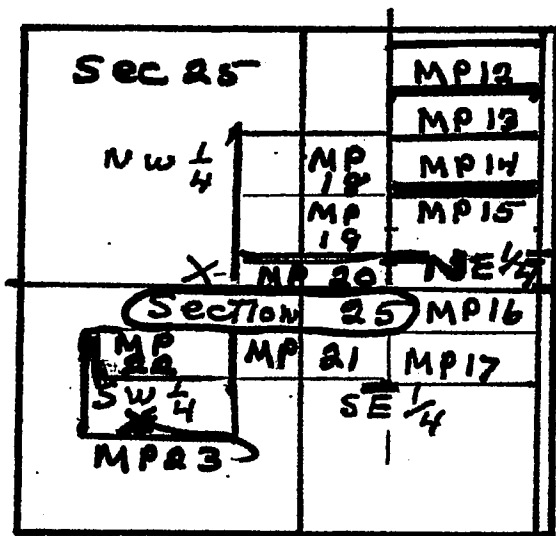 Sec 25
MP12
MP13
NW 1/4
MP
18
MP14
MP
19
MP15
X
MP 20
NE 1/4
Section 25
MP16
MP
22
MP 21
MP17
SW 1/4
SE 1/4
MP23